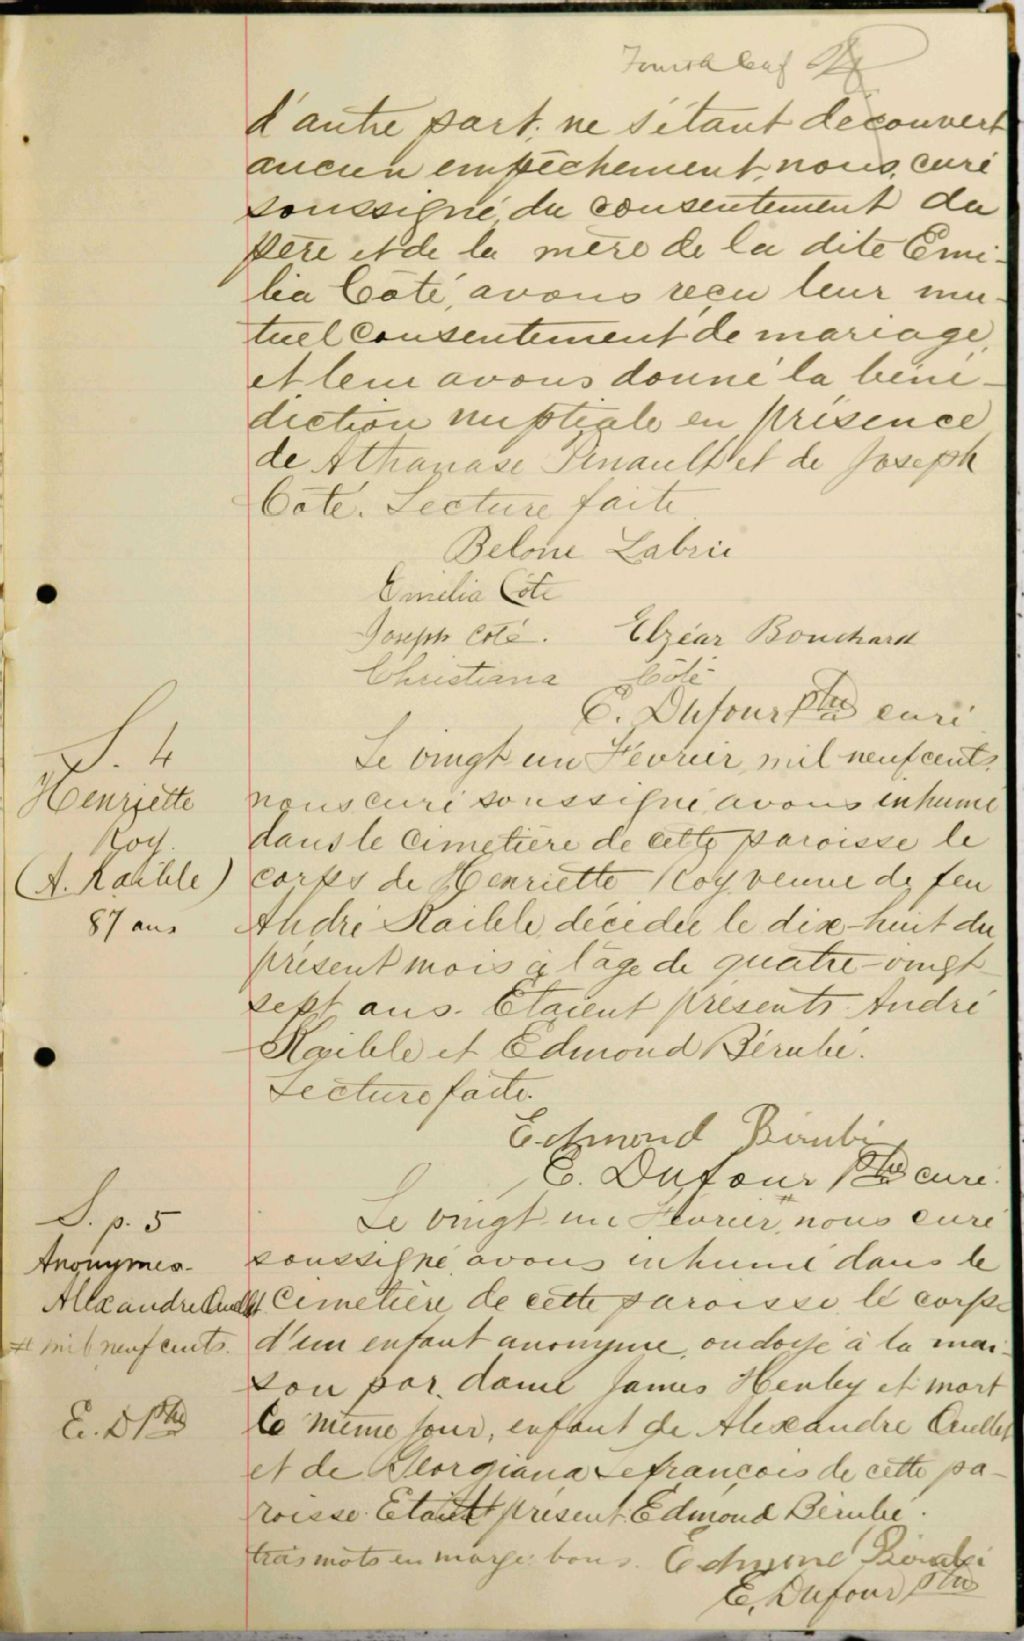 Fourth leaf
d'autre part; ne s'étant découvert
aucun empêchement, nous, curé
soussigné, du consentement du
père et de la mère de la dite Emi-
lia Côté, avons reçu leur mu-
tuel consentement de mariage,
et leur avons donné la béné-
diction nuptiale en présence
de Athanase Pinault et de Joseph
Côté. Lecture faite.
Belone Labrie
Emilia Côté
Joseph Coté. Elzéar Bouchard
Christiana Côté
E. Dufour ptre curé
S. 4
Henriette
Roy.
(A. Raible)
87 ans
Le vingt un Février mil neuf cents,
nous curé soussigné avons inhumé
dans le cimetière de cette paroisse le
corps de Henriette Roy, veuve de feu
André Raible, décédée le dix-huit du
présent mois à l'âge de quatre-vingt
sept ans. Etaient présents André
Raible et Edmond Bérubé.
Lecture faite.
Edmond Bérubé
E. Dufour Ptre curé.
S. p. 5
Anonymes.
Alexandre Ouellet
# mil neuf cents.
E. D Ptre
Le vingt un Février # nous curé
soussigné avons inhumé dans le
cimetière de cette paroisse le corps
d'un enfant anonyme, ondoyé à la mai-
son par dame James Henley et mort
le même jour, enfant de Alexandre Ouellet
et de Georgiana Lefrançois de cette pa-
roisse. Etait présent Edmond Bérubé.
trois mots en marge bons. Edmond Bérubé
E. Dufour Ptre